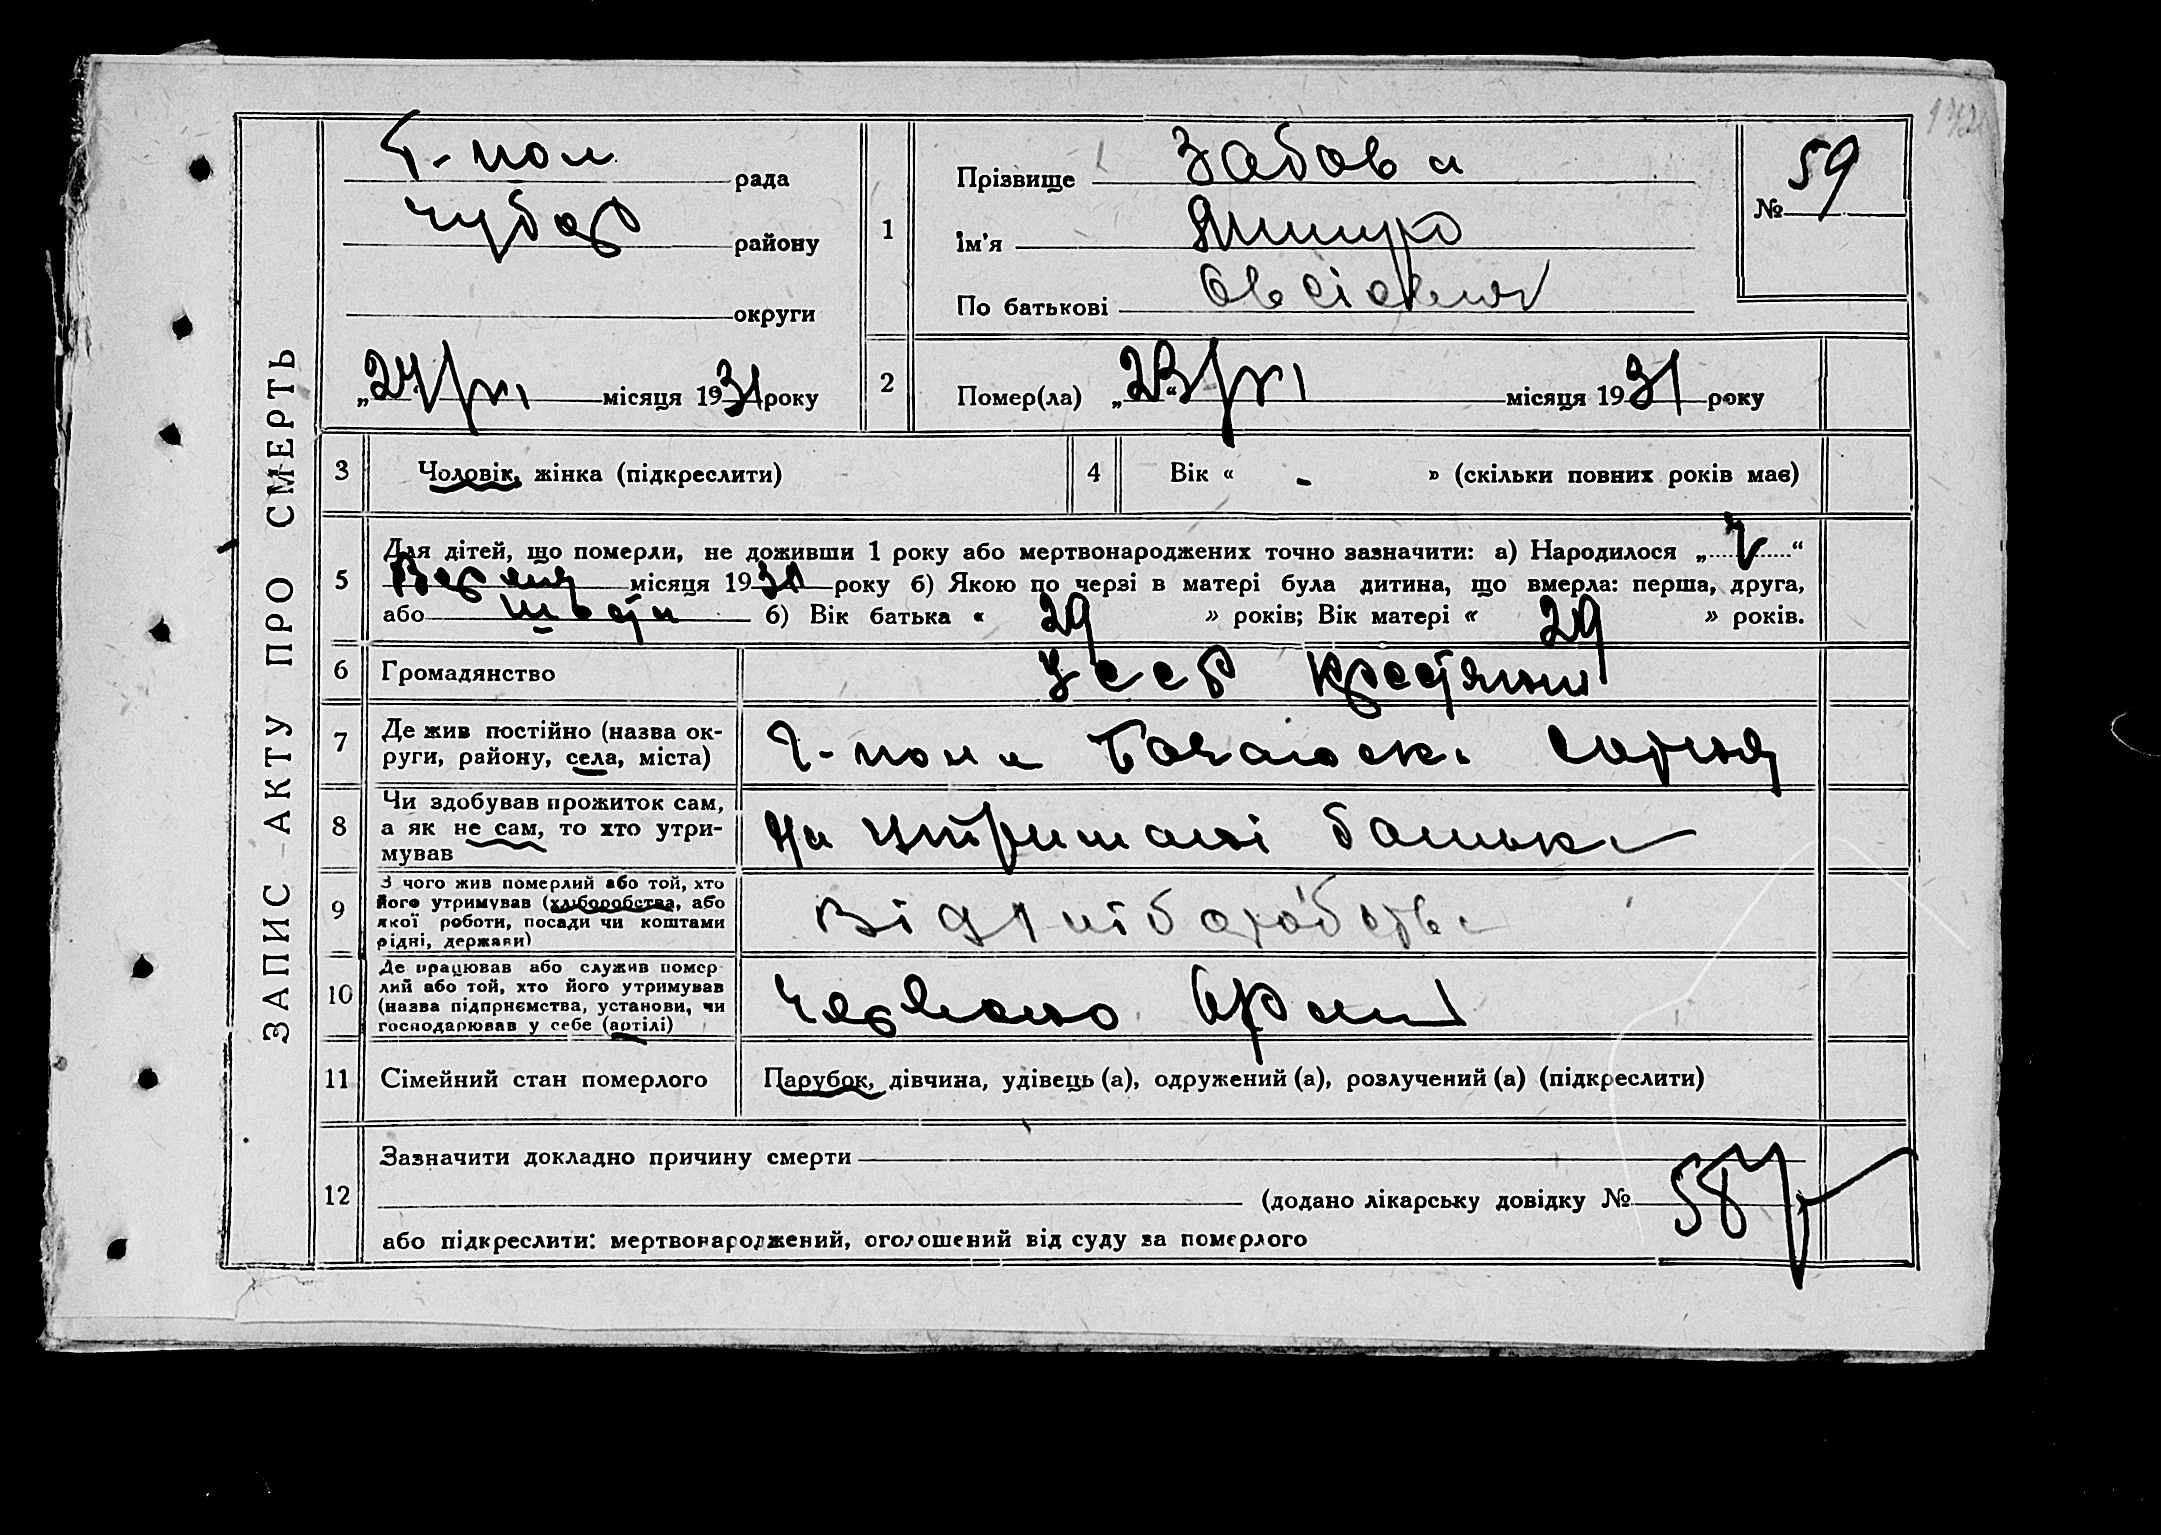 ЗАПИС АКТУ ПРО СМЕРТЬ
рада
району
округи
„24 місяця 1931 року
1
Прізвище
Ім'я
По батькові
№ 59
2
Помер(ла) „23“ місяця 1931 року
3
Чоловік, жінка (підкреслити)
4
Вік « - » (скільки повних років має)
5
Для дітей, що померли, не доживши 1 року або мертвонароджених точно зазначити: а) Народилося „ “
місяця 193 року б) Якою по черзі в матері була дитина, що вмерла: перша, друга,
або б) Вік батька « 29 » років; Вік матері « 29 » років.
6
Громадянство
УССР
7
Де жив постійно (назва ок-
руги, району, села, міста)
8
Чи здобував прожиток сам,
а як не сам, то хто утри-
мував
На утримані батька
9
З чого жив померлий або той, хто
його утримував (хліборобства, або
якої роботи, посади чи коштами
рідні, держави)
Від хліборобства
10
Де працював або служив помер-
лий або той, хто його утримував
(назва підприємства, установи, чи
господарював у себе (артілі)
11
Сімейний стан померлого
Парубок, дівчина, удівець (а), одружений (а), розлучений (а) (підкреслити)
12
Зазначити докладно причину смерти
(додано лікарську довідку №
або підкреслити: мертвонароджений, оголошений від суду за померлого